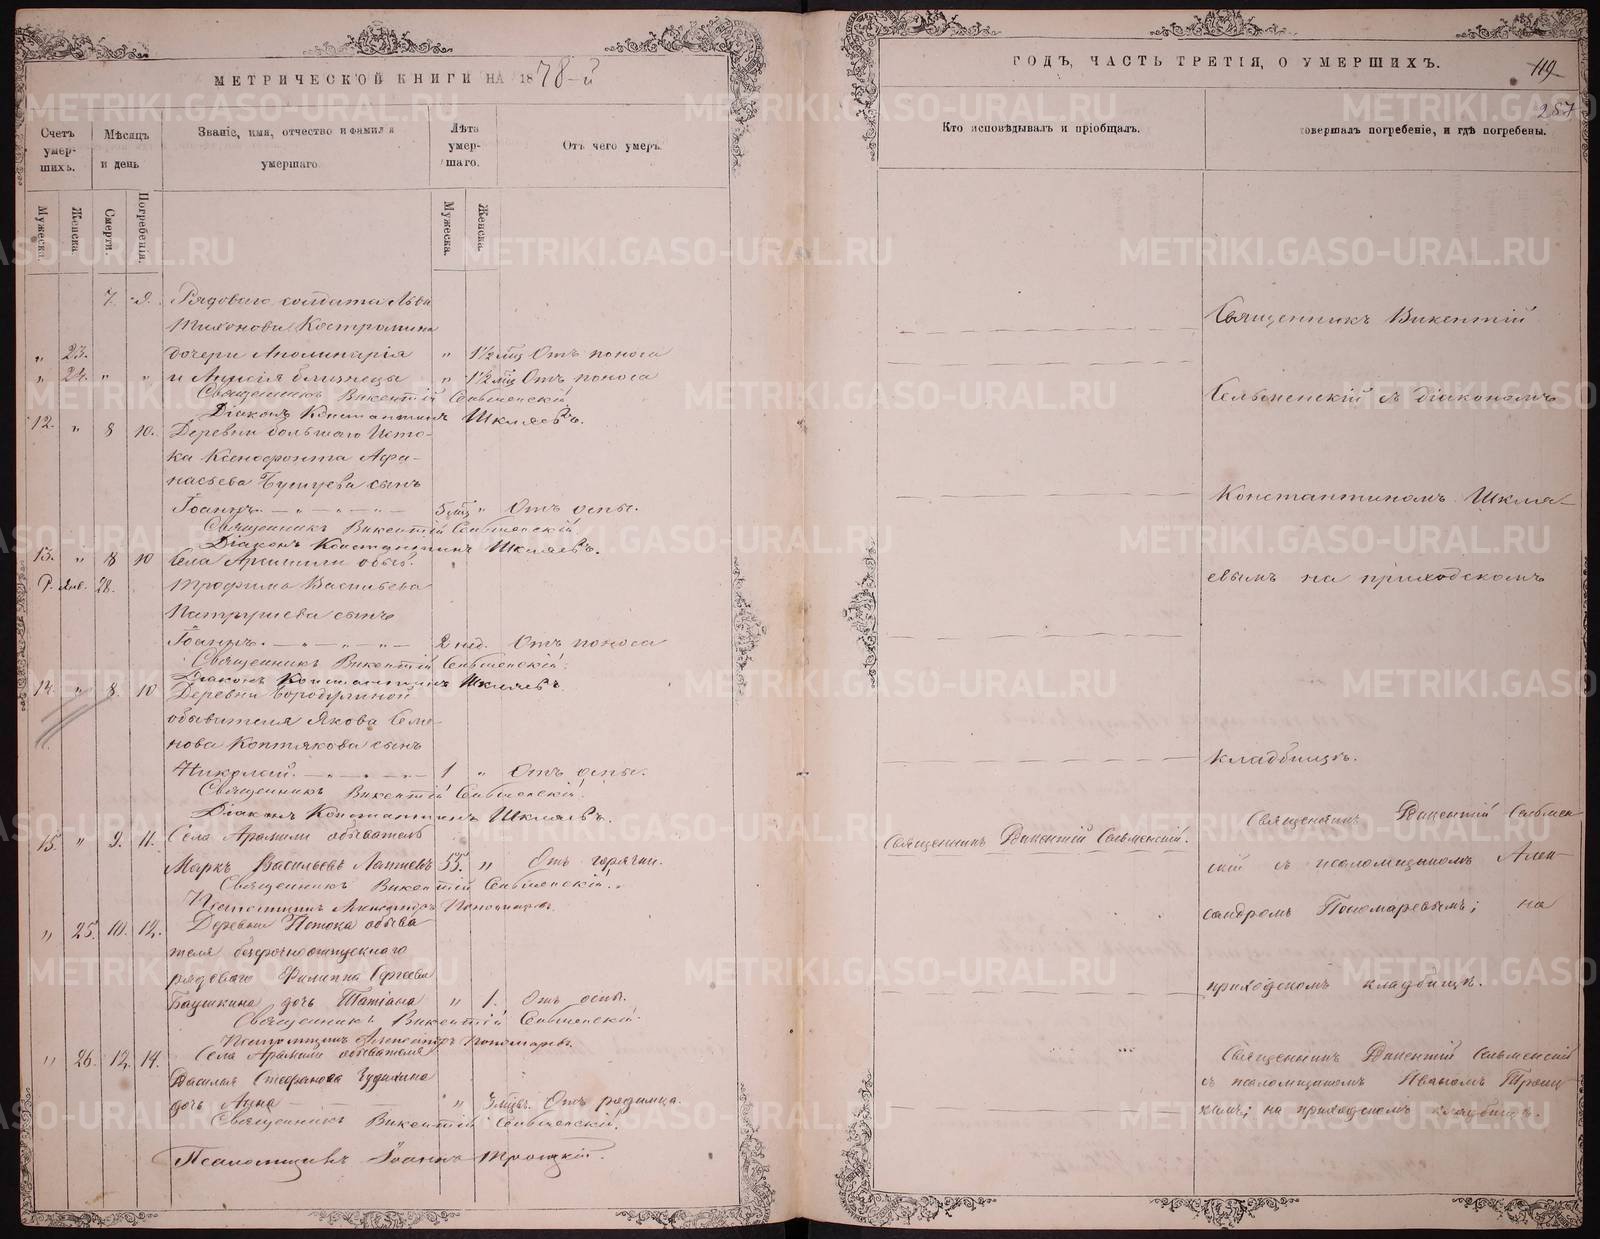 МЕТРИЧЕСКОЙ КНИГИ НА 1878-й
Счетъ умер-шихъ.
Мѣсяцъ и день
Званіе, имя, отчество и фамилія умершаго.
Лѣта умер-шаго.
Отъ чего умеръ.
Мужеска.
Женска.
Смерти.
Погребенія.
Мужеска.
Женска.
7. 9. Рядоваго солдата Льва
Тихонова Костромина
„ 23. дочери Аполинарія „ 1½ мц Отъ поноса
„ 24. „ „ и Анисія близнецы „ 1½ мц Отъ поноса
Священникъ Викентій Сельменскій
Діаконъ Константинъ Шкляевъ.
12. „ 8 10. Деревни большаго Исто-
ка Ксенофонта Афа-
насьева сынъ
Іоаннъ. — „ — „ — 5 мц „ Отъ оспы.
Священникъ Викентій Сельменскій
Діаконъ Константинъ Шкляевъ.
13. „ 8 10 Села Арамили обыв.
Р. Янв. 28. Трофима Васильева
Патрушева сынъ
Іоаннъ. — „ — „ — 2 нед. Отъ поноса
Священникъ Викентій Сельменскій.
Діаконъ Константинъ Шкляевъ
14. „ 8. 10 Деревни Бородулиной
обывателя Якова Семе-
нова Коптякова сынъ
Николай. — „ — „ — 1 „ Отъ оспы.
Священникъ Викентій Сельменскій.
Діаконъ Константинъ Шкляевъ.
15. „ 9. 11. Села Арамили обыватель
Маркъ Васильевъ Лаптевъ 55. „ Отъ горячки.
Священникъ Викентій Сельменскій.
Псаломщикъ Александръ Пономаревъ
„ 25. 10. 12. Деревни Истока обыва
теля безсрочноотпускнаго
рядоваго Филиппа Сергеева
Баушкина дочь Татіана „ 1. Отъ оспы.
Священникъ Викентій Сельменскій.
Псаломщикъ Александръ Пономаревъ.
„ 26. 12. 14. Села Арамили обывателя
Василья Стефанова Чудинова
дочь Анна — — — „ 3 мцы. Отъ родимца.
Священникъ Викентій Сельменскій.
Псаломщикъ Іоаннъ Троицкій.
ГОДЪ, ЧАСТЬ ТРЕТІЯ, О УМЕРШИХЪ.
119
287
Кто исповѣдывалъ и пріобщалъ.
совершалъ погребеніе, и гдѣ погребены.
Священникъ Викентій
Сельменскій съ діакономъ
Константиномъ Шкля-
евымъ на приходскомъ
кладбищѣ.
Священникъ Викентій Сельменскій.
Священникъ Викентій Сельмен
скій съ псаломщикомъ Алек-
сандромъ Пономаревымъ; на
приходскомъ кладбищѣ.
Священникъ Викентій Сельменскій
съ псаломщикомъ Иваномъ Троиц-
кимъ; на приходскомъ кладбищѣ.
METRIKI.GASO-URAL.RU